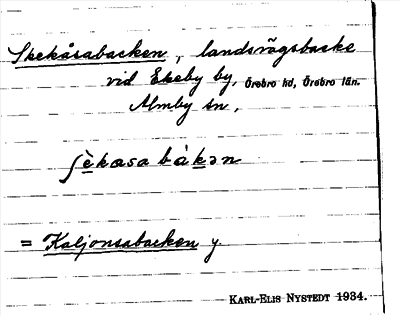 Skekåsabacken, landsvägsbacke
vid Ekeby by, Örebro hd, Örebro län.
Almby sn,
ʃèkasa bàkən
= Kaljonsabacken y
KARL-ELIS NYSTEDT 1934.